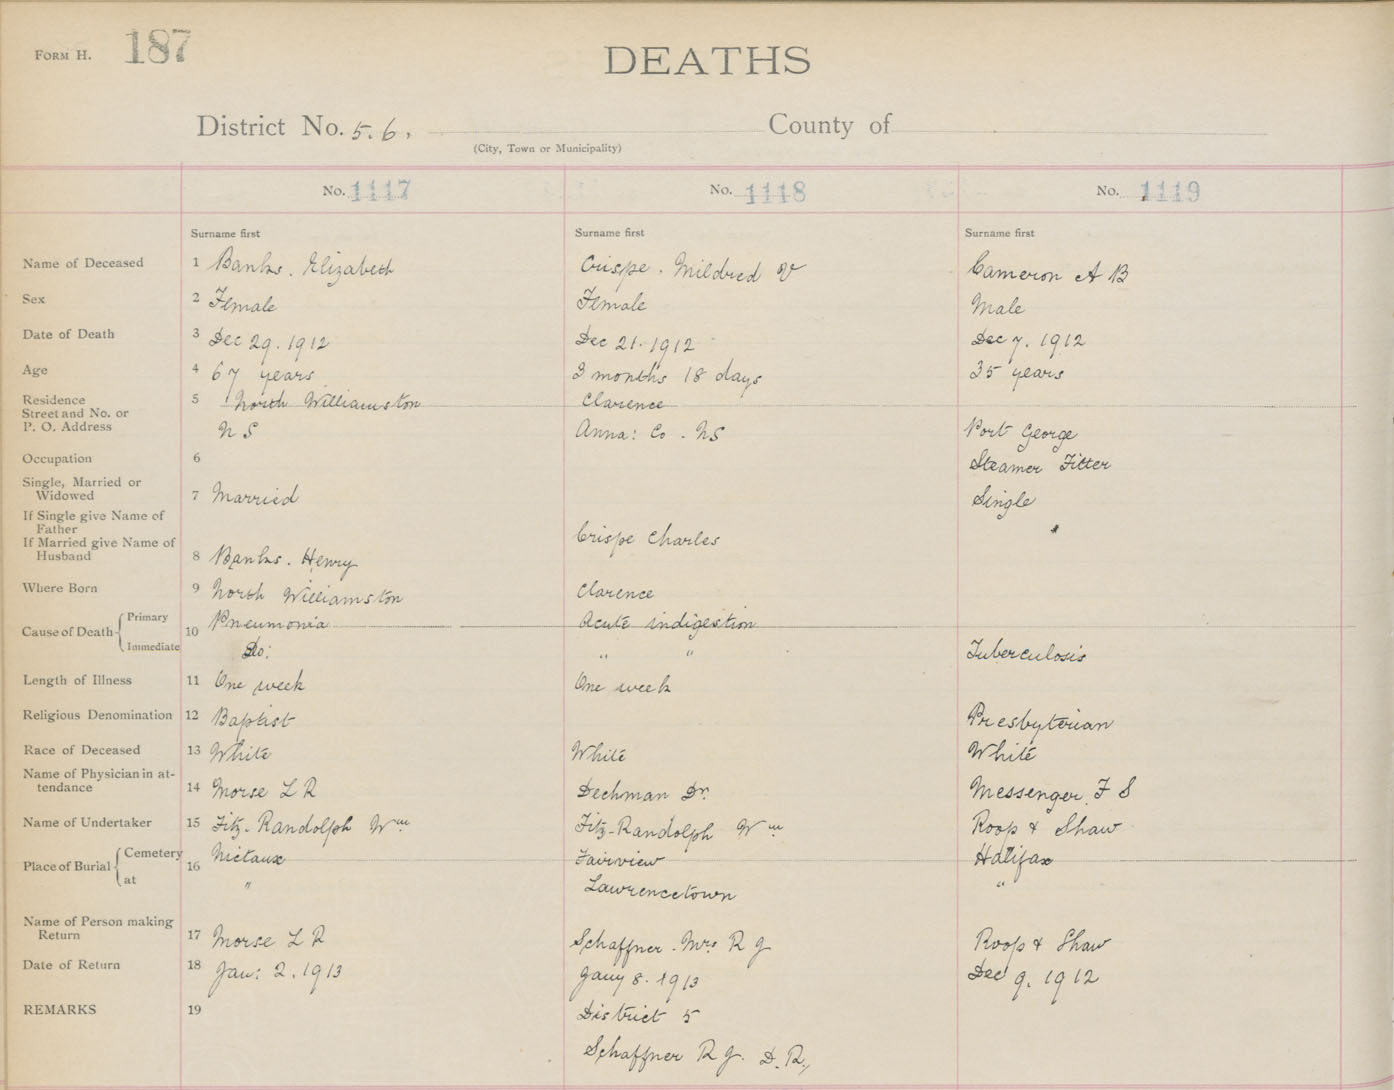 FORM H. 187
DEATHS
District No. 5.6, County of
(City, Town or Municipality)
No. 1117 No. 1118 No. 1119
Surname first Surname first Surname first
Name of Deceased 1 Banks. Elizabeth Crispe. Mildred V Cameron A B
Sex 2 Female Female Male
Date of Death 3 Dec 29. 1912 Dec 21. 1912 Dec 7. 1912
Age 4 67 years 3 months 18 days 35 years
Residence 5 North Williamston Clarence
Street and No. or
P. O. Address N S Anna: Co. NS Port George
Occupation 6 Steamer Fitter
Single, Married or
Widowed 7 Married Single
If Single give Name of
Father
If Married give Name of Crispe Charles
Husband 8 Banks. Henry
Where Born 9 North Williamston Clarence
Cause of Death Primary 10 Pneumonia Acute indigestion
Immediate Do: " " Tuberculosis
Length of Illness 11 One week One week
Religious Denomination 12 Baptist Presbyterian
Race of Deceased 13 White White White
Name of Physician in at-
tendance 14 Morse L R Dechman Dr. Messenger. F S
Name of Undertaker 15 Fitz-Randolph Wm Fitz-Randolph Wm Roop & Shaw
Place of Burial Cemetery 16 Nictaux Fairview Halifax
at " Lawrencetown "
Name of Person making
Return 17 Morse L R Schaffner. Mrs R J Roop & Shaw
Date of Return 18 Jan: 2. 1913 Jany 8. 1913 Dec 9. 1912
REMARKS 19 District 5
Schaffner R J. D. R,